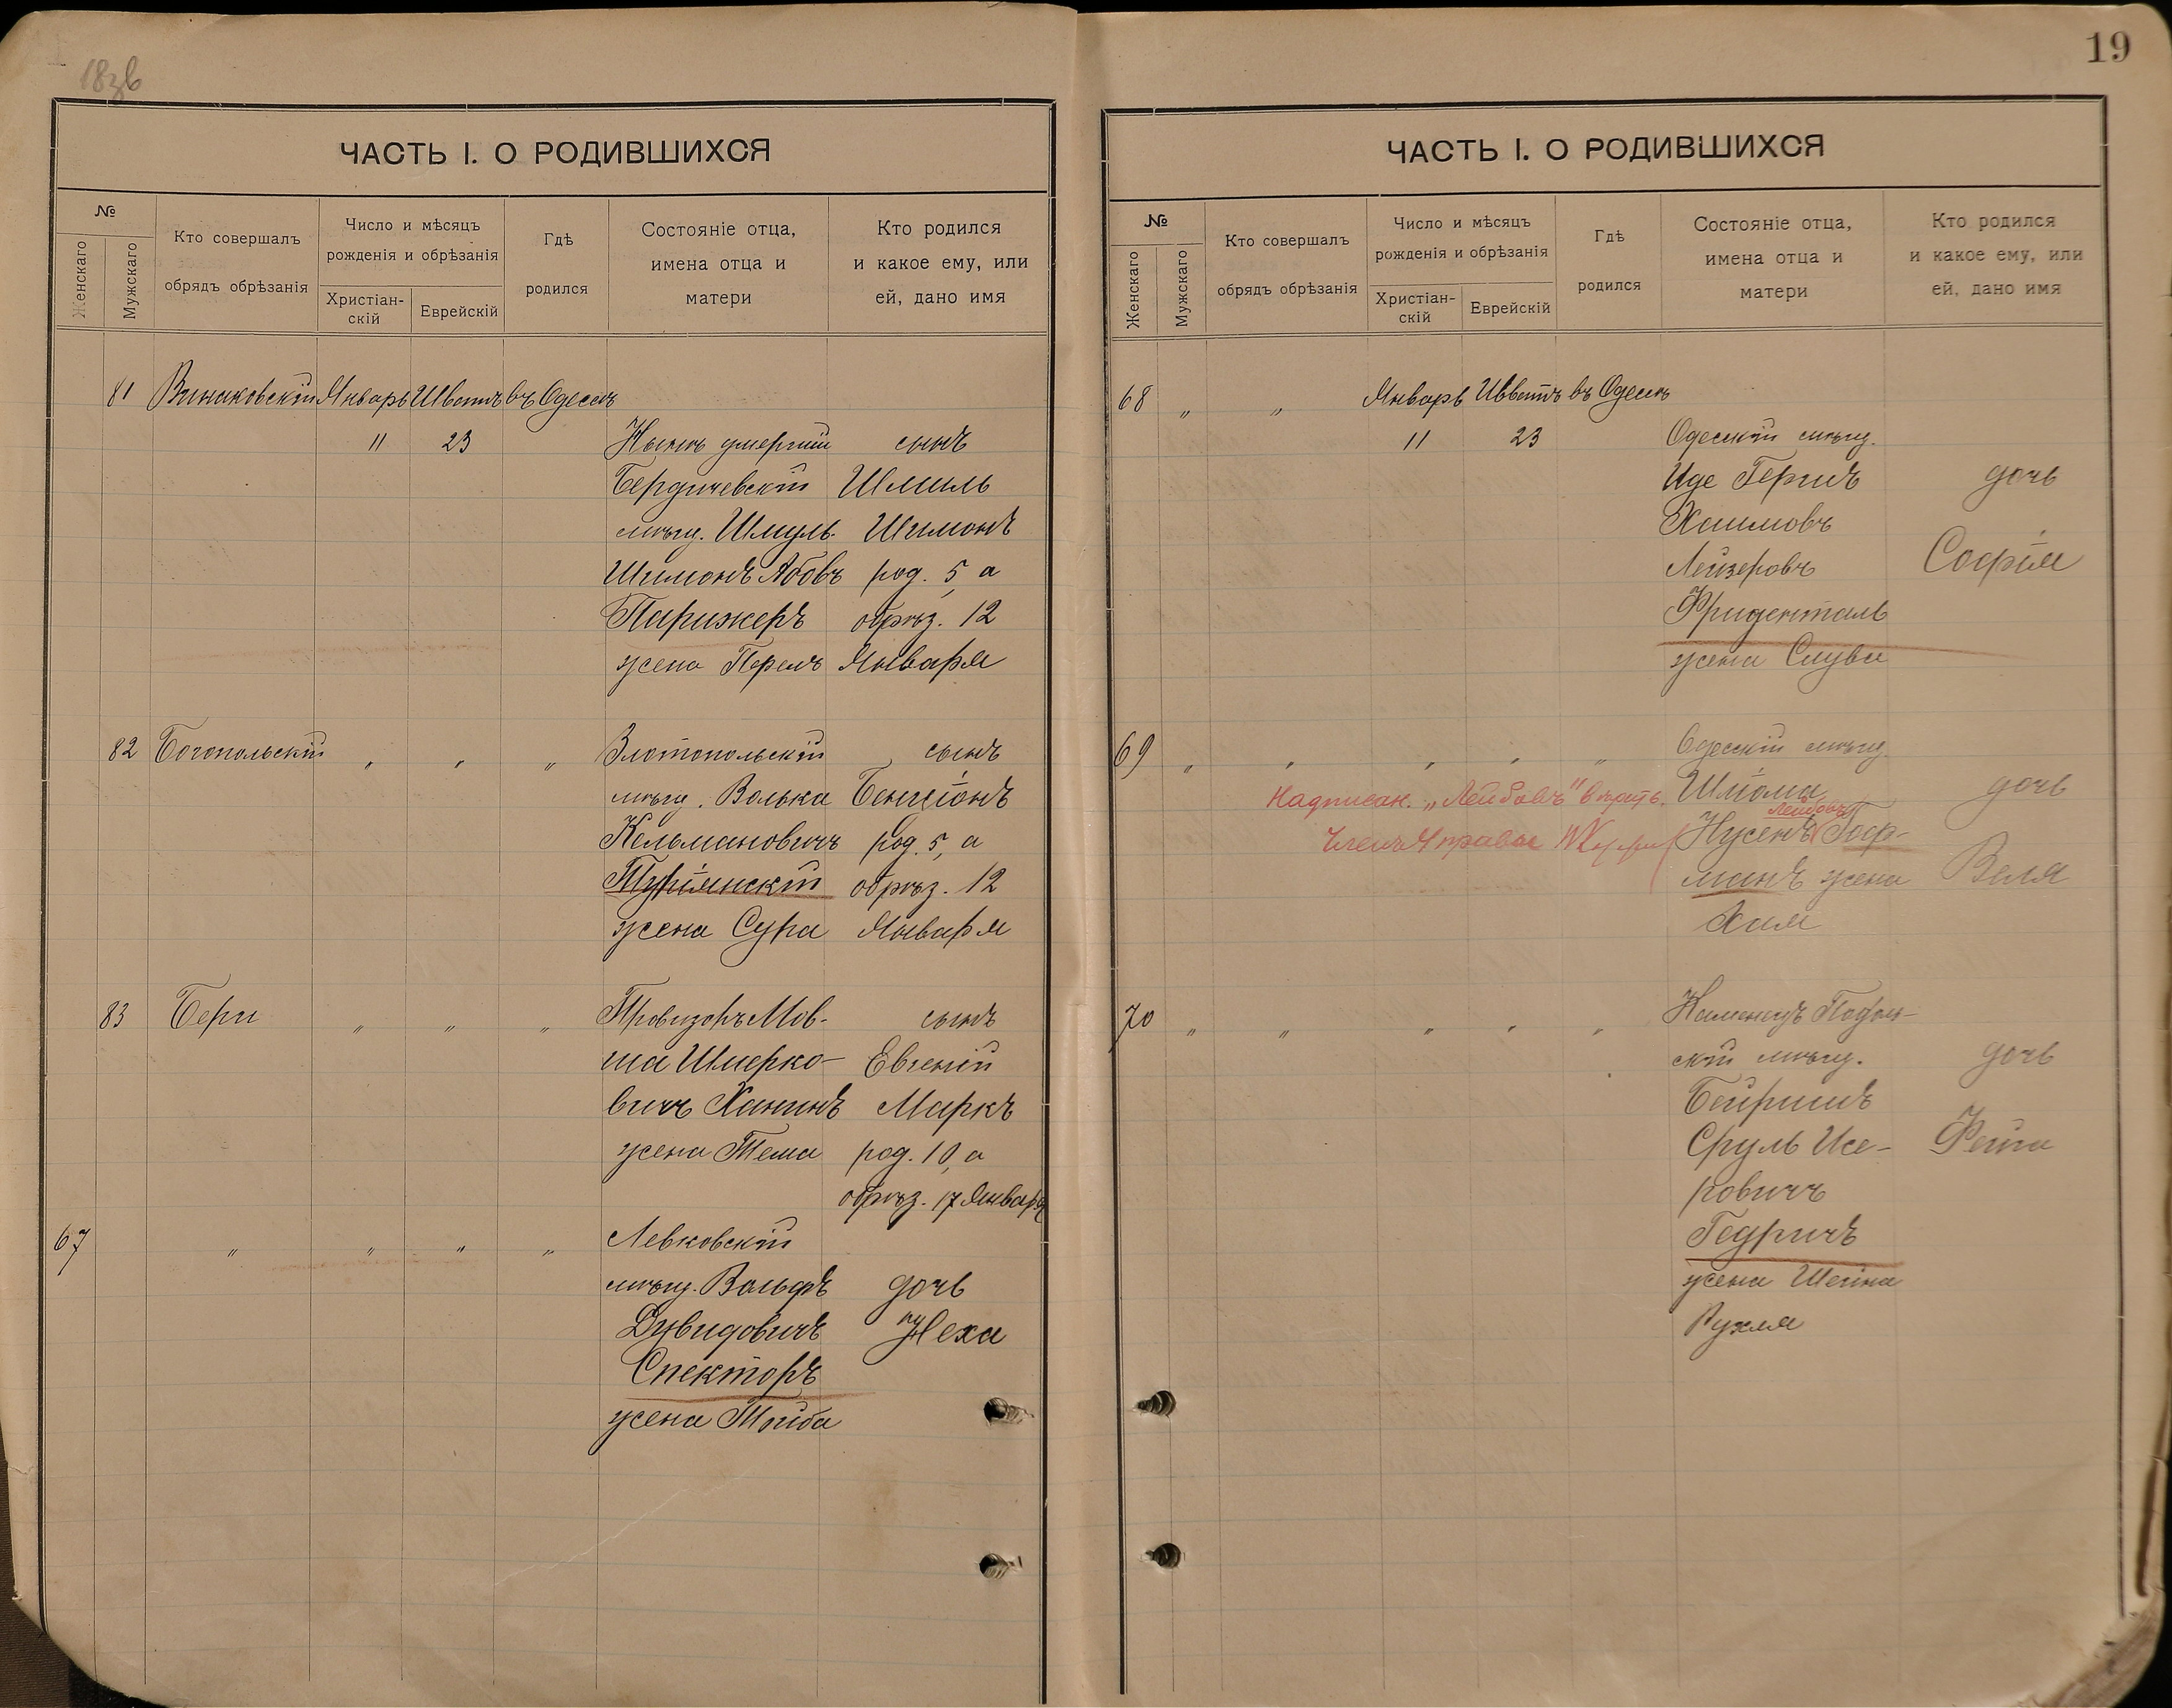 19
ЧАСТЬ I. О РОДИВШИХСЯ
№
Женскаго
Мужскаго
Кто совершалъ
обрядъ обрѣзанія
Число и мѣсяцъ
рожденія и обрѣзанія
Христіан-
скій
Еврейскій
Гдѣ
родился
Состояніе отца,
имена отца и
матери
Кто родился
и какое ему, или
ей, дано имя
81 Виниковскій Январь Шватъ въ Одессѣ
11 23 Нынѣ умершій сынъ
Бердичевскій Шмиль
мѣщ. Шмуль- Шимонъ
Шимонъ Абовъ род. 5, а
Парижеръ обрѣз. 12
жена Перель Января
82 Богопольскій „ „ „ Златопольскій сынъ
мѣщ. Волька Бенціонъ
Кельмановичъ род. 5, а
Турянскій обрѣз. 12
жена Сура Января
83 Бери „ „ „ Провизоръ Мов-
сынъ
ша Шмерко- Евгеній
вичъ Ханинъ Маркъ
жена Тема род. 10, а
обрѣз. 17 Января
67 „ „ „ „ Левковскій
мѣщ. Вольфъ дочь
Дувидовичъ Неха
Спекторъ
жена Тойба
ЧАСТЬ I. О РОДИВШИХСЯ
№
Женскаго
Мужскаго
Кто совершалъ
обрядъ обрѣзанія
Число и мѣсяцъ
рожденія и обрѣзанія
Христіан-
скій
Еврейскій
Гдѣ
родился
Состояніе отца,
имена отца и
матери
Кто родился
и какое ему, или
ей, дано имя
68 „ „ Январь Шватъ въ Одессѣ
11 23 Одесскій мѣщ.
Иде Гершъ дочь
Хаимовъ
Лейзеровъ Софія
Фриденталь
жена Слува
69 „ „ „ „ „ Одесскій мѣщ.
Надписан. „Лейбовъ" вѣрить. Шлема дочь
Лейбовъ
Членъ Управы Нусенъ Гоф-
манъ жена Веля
Хая
70 „ „ „ „ „ Каменецъ Подоль-
скій мѣщ. дочь
Бейришъ
Сруль Исе- Фейга
ровичъ
Гедричъ
жена Шейна
Рухля